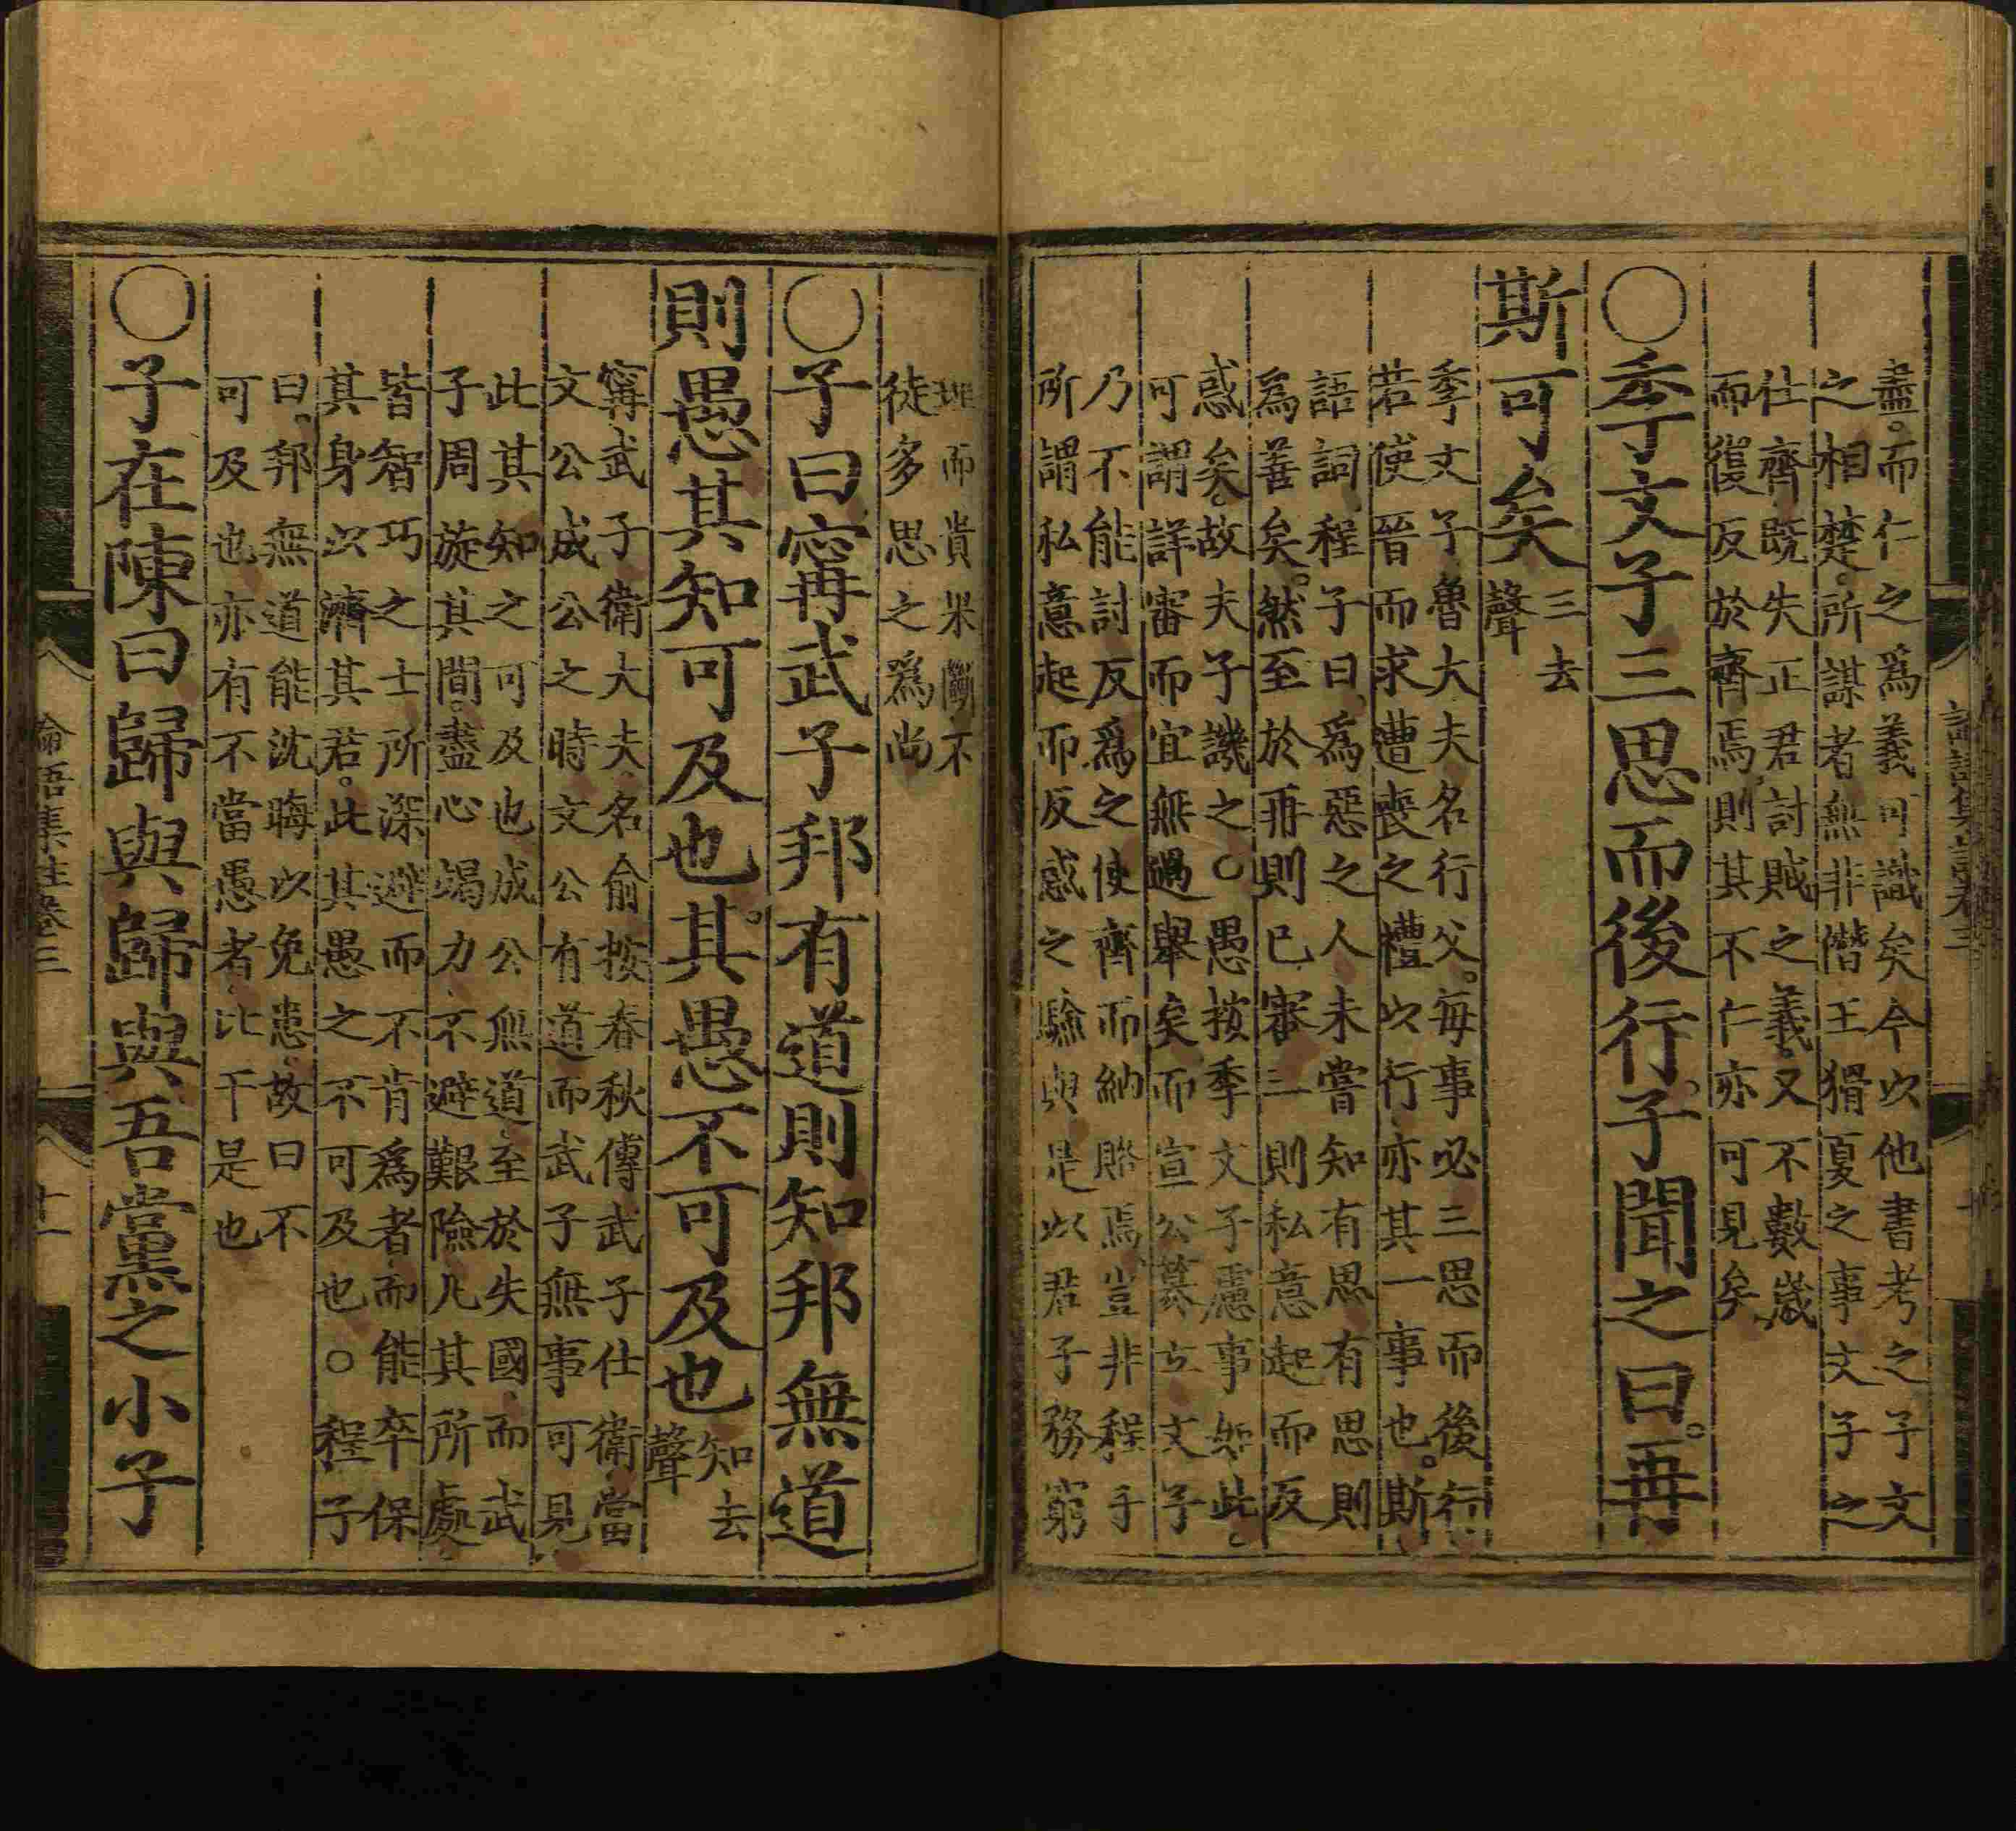 盡而仁之爲義可識矣今以他書考之子文
之相楚所謀者無非僭王猾夏之事文子之
仕齊既失正君討賊之義又不數歲
而復反於齊焉則其不仁亦可見矣
〇季文子三思而後行子聞之曰再
斯可矣
三去
聲
季文子魯大夫名行父每事必三思而後行
若使晉而求遭喪之禮以行亦其一事也斯
語詞程子曰爲惡之人未嘗知有思有思則
爲善矣然至於再則已審三則私意起而反
惑矣故夫子譏之〇愚按季文子慮事如此
可謂詳審而宜無過舉矣而宣公簒立文子
乃不能討反爲之使齊而納賂焉豈非程子
所謂私意起而反惑之驗與是以君子務窮
理而貴果斷不
徒多思之爲尚
〇子曰甯武子邦有道則知邦無道
則愚其知可及也其愚不可及也
知去
聲
甯武子衛大夫名俞按春秋傳武子仕衛當
文公成公之時文公有道而武子無事可見
此其知之可及也成公無道至於失國而武
子周旋其間盡心竭力不避艱險凡其所處
皆智巧之士所深避而不肯爲者而能卒保
其身以濟其君此其愚之不可及也〇程子
曰邦無道能沈晦以免患故曰不
可及也亦有不當愚者比干是也
〇子在陳曰歸與歸與吾黨之小子
論語集註卷三
十一